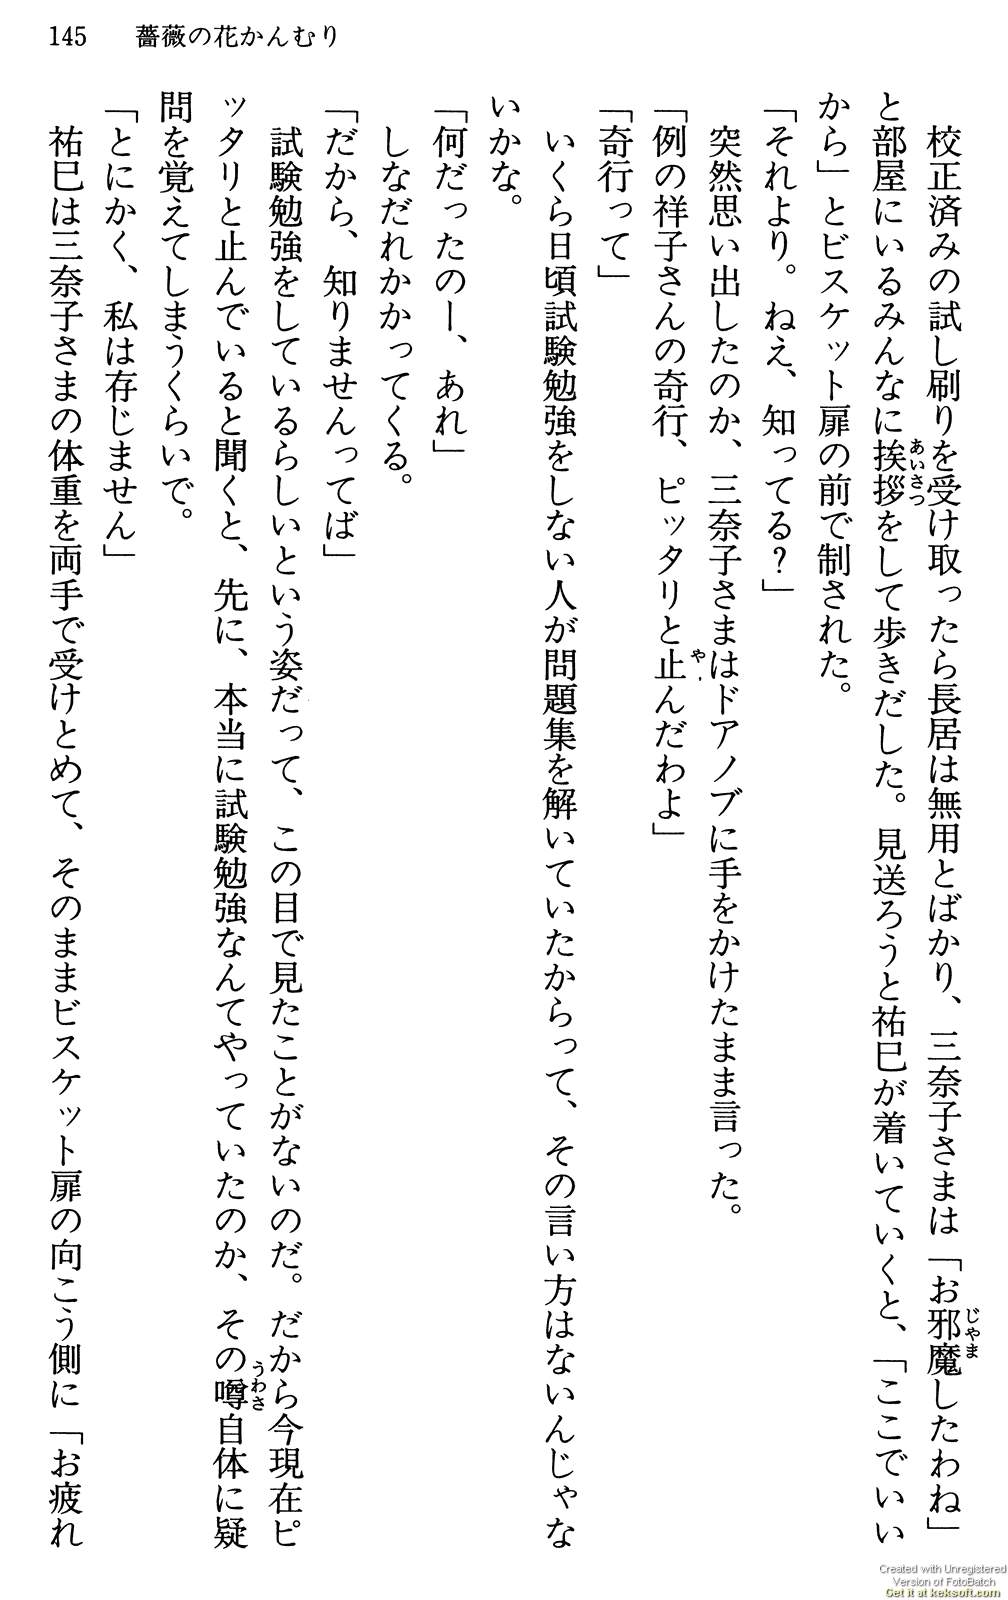 145　薔薇の花かんむり
　校正済みの試し刷りを受け取ったら長居は無用とばかり、三奈子さまは「お邪魔したわね」
と部屋にいるみんなに挨拶をして歩きだした。見送ろうと祐巳が着いていくと、「ここでいい
から」とビスケット扉の前で制された。
「それより。ねえ、知ってる？」
　突然思い出したのか、三奈子さまはドアノブに手をかけたまま言った。
「例の祥子さんの奇行、ピッタリと止んだわよ」
「奇行って」
　いくら日頃試験勉強をしない人が問題集を解いていたからって、その言い方はないんじゃな
いかな。
「何だったのー、あれ」
　しなだれかかってくる。
「だから、知りませんってば」
　試験勉強をしているらしいという姿だって、この目で見たことがないのだ。だから今現在ピ
ッタリと止んでいると聞くと、先に、本当に試験勉強なんてやっていたのか、その噂自体に疑
問を覚えてしまうくらいで。
「とにかく、私は存じません」
　祐巳は三奈子さまの体重を両手で受けとめて、そのままビスケット扉の向こう側に「お疲れ
あいさつ
じゃま
や
うわさ
Created with Unregistered
Version of FotoBatch
Get it at keksoft.com